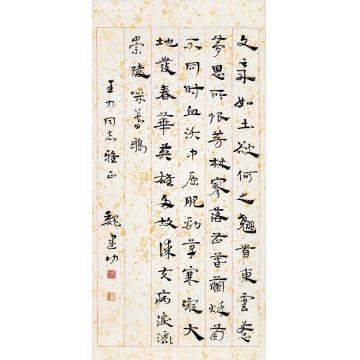 文章如土欲何之翹首東雲惹
夢思所恨芳林寥落甚春蘭秋菊
不同時血沃中原肥勁草寒凝大
地發春華英雄多故謀夫病淚灑
崇陵噪暮鴉
王力同志雅正
魏建功